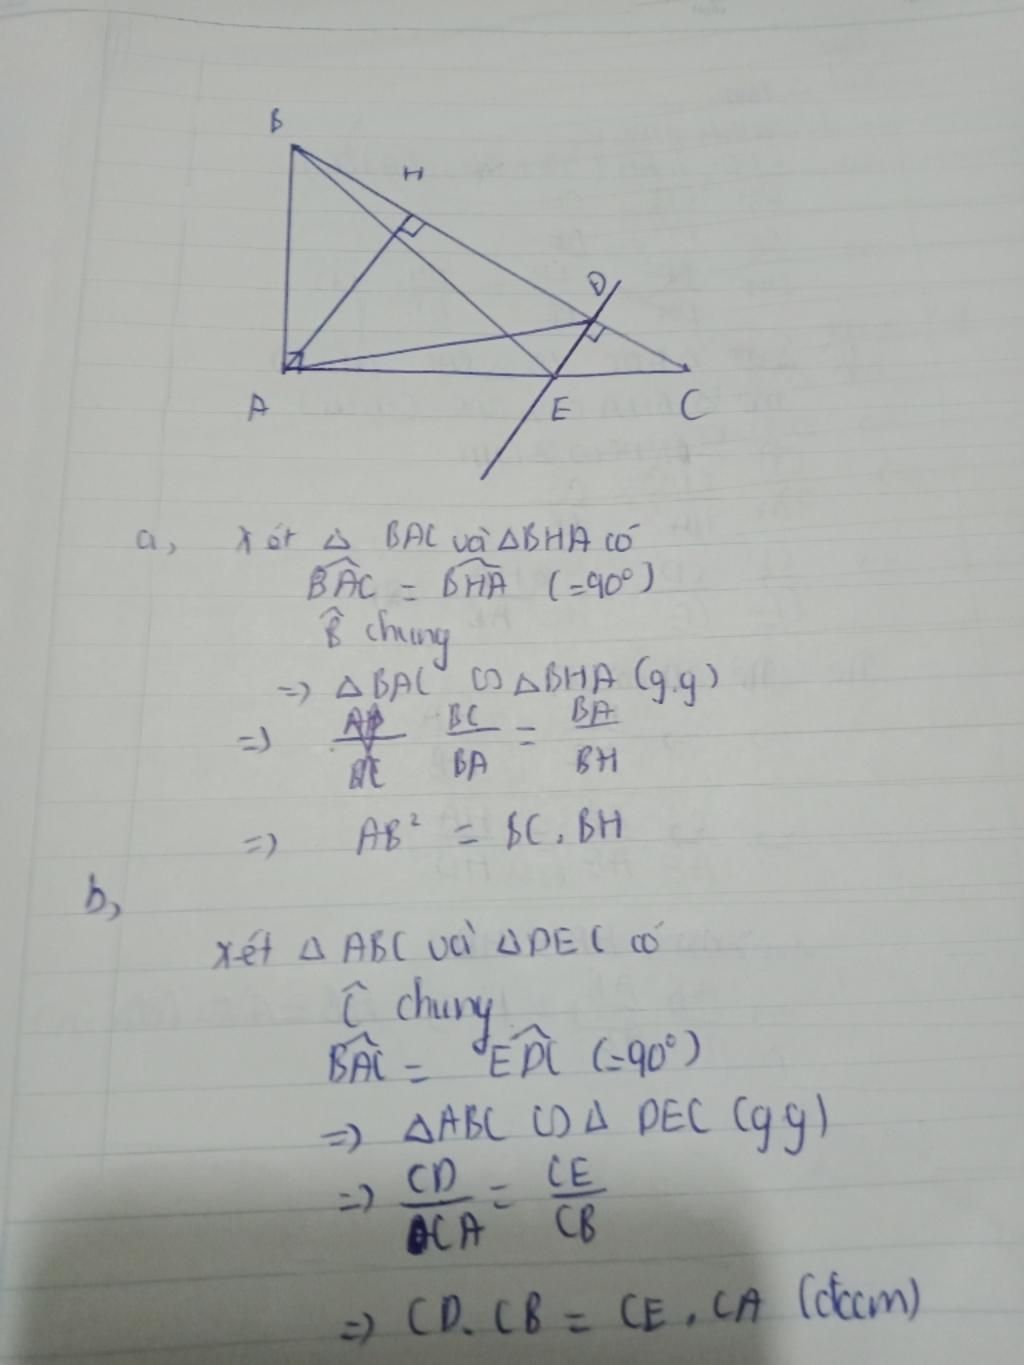 B
H
D
A
E
C
a, Xét △ BAC và △BHA có
BAC = BHA (=90°)
B̂ chung
=> △BAC ∽ △BHA (g.g)
=> BC/BA = BA/BH
=> AB² = BC.BH
b,
Xét △ ABC và △DEC có
Ĉ chung
BAC = EDC (=90°)
=> △ABC ∽ △ DEC (g g)
=> CD/CA = CE/CB
=> CD.CB = CE.CA (đccm)